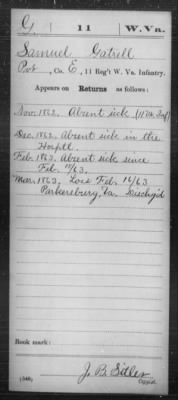 G | 11 | W.Va.
Samuel Gatrell
Pvt, Co. E, 11 Reg't W. Va. Infantry.
Appears on Returns as follows:
Nov. 1862. Absent sick (11 Va. Inf)
Dec. 1862. Absent sick in the
Hosptl.
Feb. 1863. Absent sick since
Feb. /63.
Mar. 1863. Loss Feb. 16/63
Parkersburg, Va. Dischg'd
Book mark:
J. B. Sitler
(546)
Copyist.